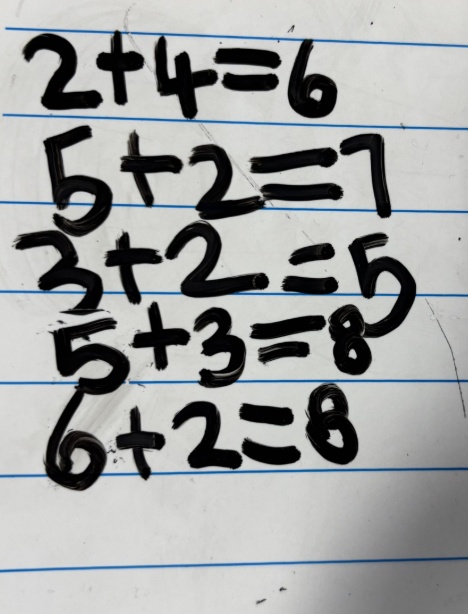 2+4=6
5+2=7
3+2=5
5+3=8
6+2=8